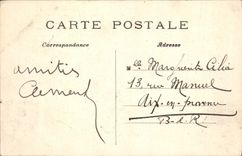 CARTE POSTALE
Correspondance
Adresse
amitiés
Clément
Mlle Marguerite Célia
13, rue Manuel
Aix-en-provence
B-d-R